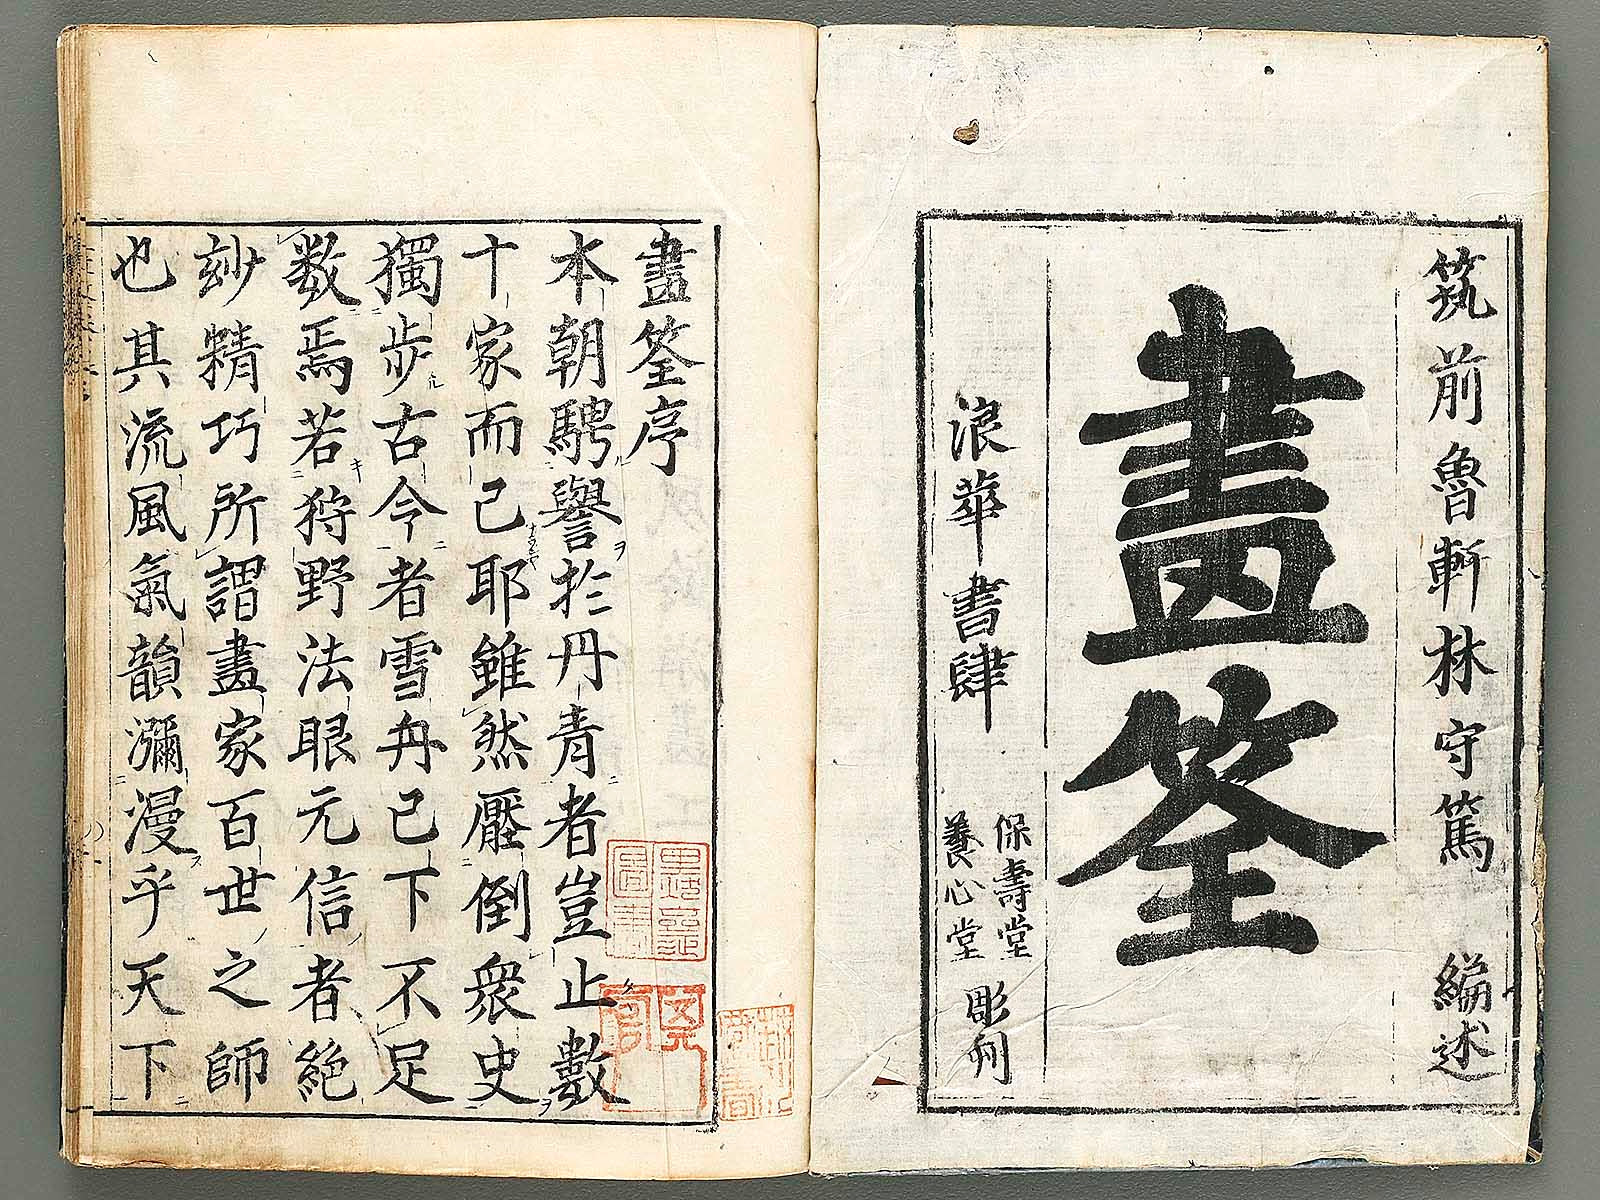 筑前魯軒林守篤 編述
畫筌
浪華書肆
保壽堂
養心堂
彫刻
畫筌序
本朝騁譽於丹青者豈止數
十家而已耶雖然壓倒衆史
獨步古今者雪舟已下不足
数焉若狩野法眼元信者絶
玅精巧所謂畫家百世之師
也其流風氣韻瀰漫乎天下